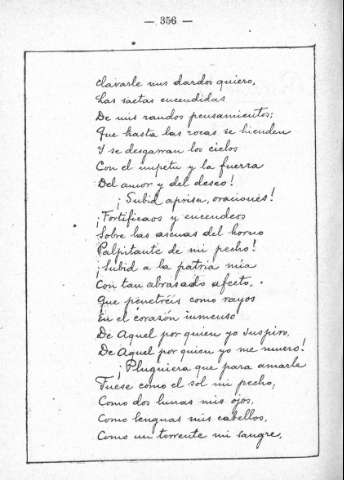 — 356 —
Clavarle mis dardos quiero,
Las saetas encendidas
De mis raudos pensamientos;
Que hasta las rocas se hienden
Y se desgarran los cielos
Con el ímpetu y la fuerza
Del amor y del deseo!
¡Subid aprisa, oraciones!
¡Fortificaos y encendeos
Sobre las ascuas del horno
Palpitante de mi pecho!
¡Subid a la patria mía
Con tan abrasado afecto,
Que penetréis como rayos
En el corazón inmenso
De Aquel por quien yo suspiro,
De Aquel por quien yo me muero!
¡Pluguiera que para amarle
Fuese como el sol mi pecho,
Como dos lunas mis ojos,
Como lenguas mis cabellos,
Como un torrente mi sangre,